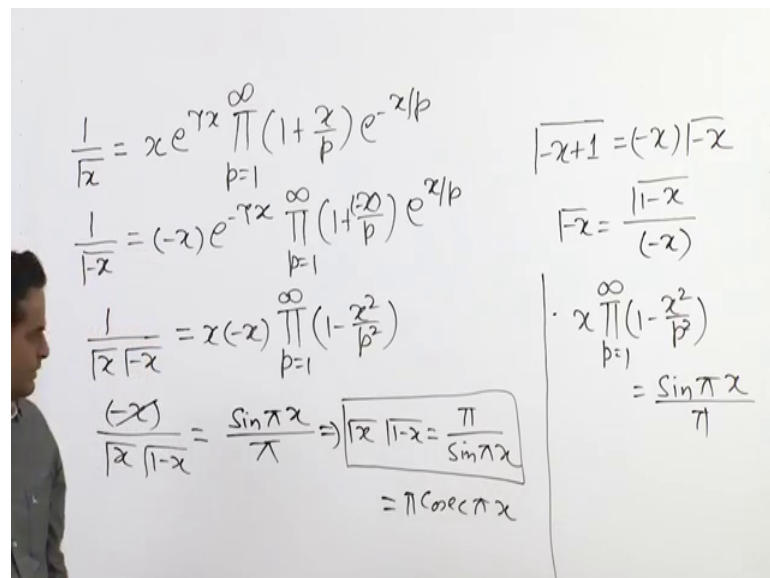 1/Γx = x e^{γx} ∏_{p=1}^{∞} (1 + x/p) e^{-x/p}
1/Γ-x = (-x) e^{-γx} ∏_{p=1}^{∞} (1 + (-x)/p) e^{x/p}
1/(Γx Γ-x) = x(-x) ∏_{p=1}^{∞} (1 - x²/p²)
(-x)/(Γx Γ1-x) = sin πx/π ⇒ Γx Γ1-x = π/sin πx
= π cosec πx
Γ-x+1 = (-x) Γ-x
Γ-x = Γ1-x/(-x)
· x ∏_{p=1}^{∞} (1 - x²/p²)
= sin πx/π